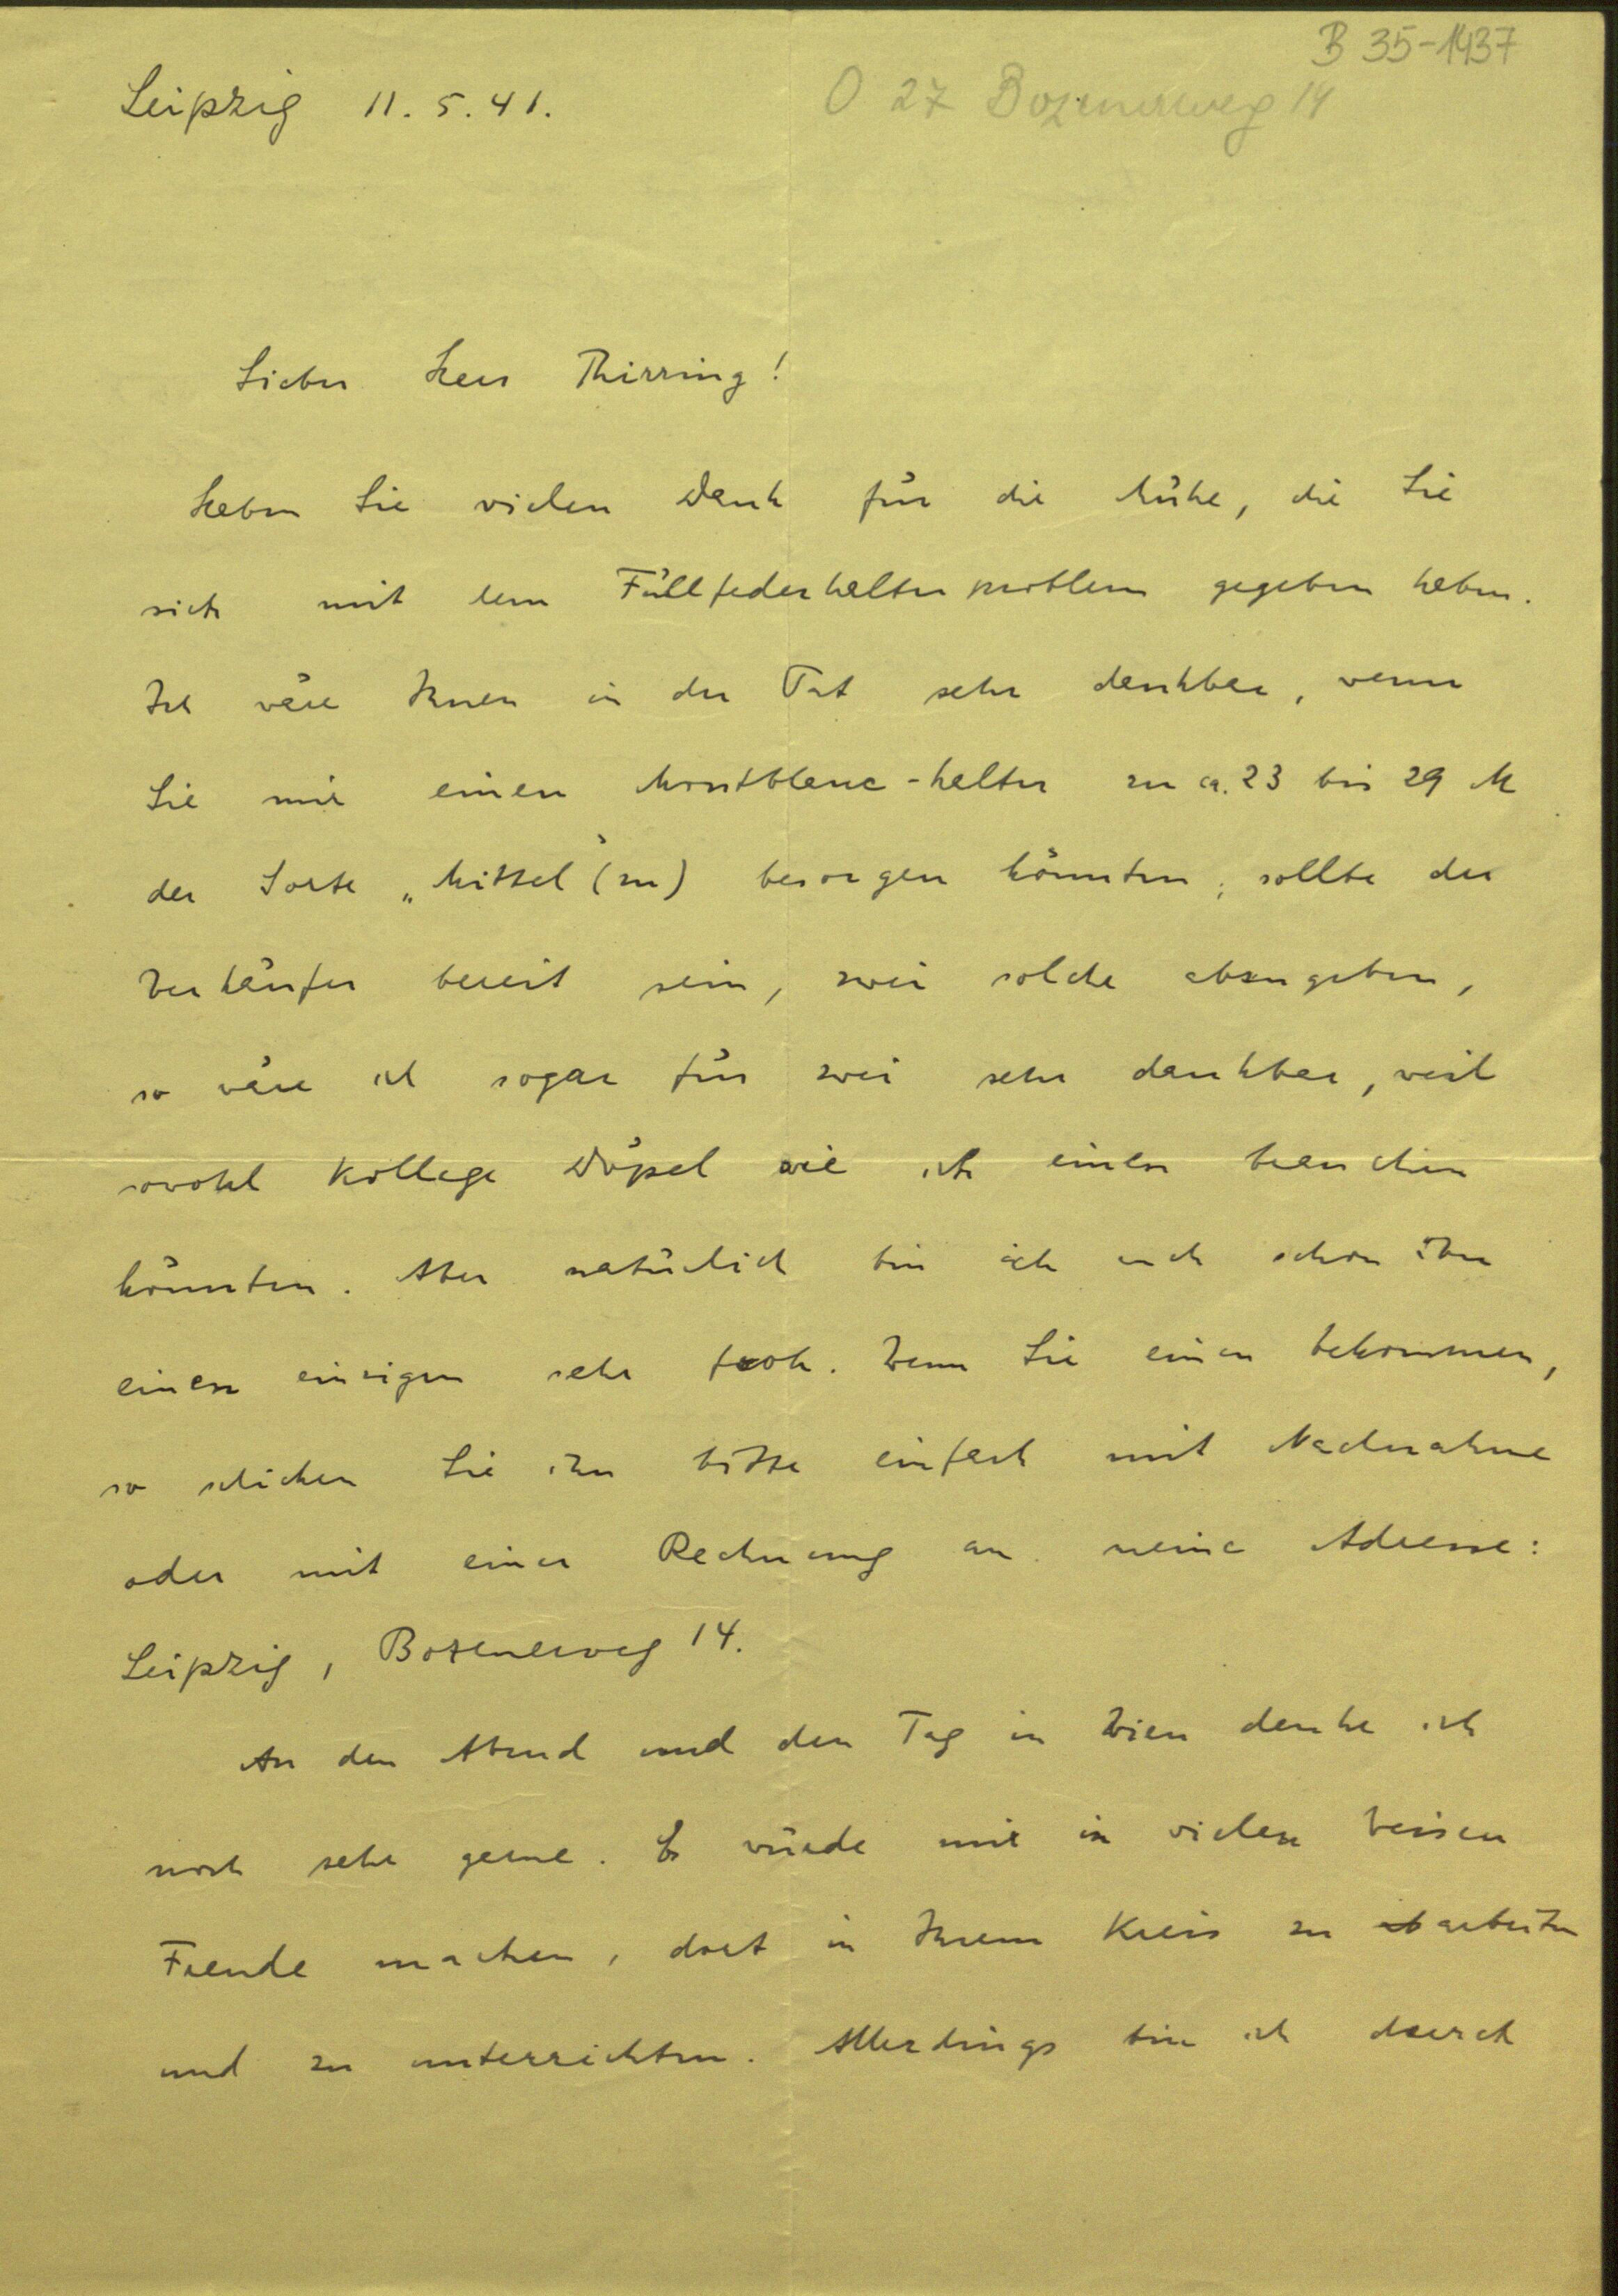 B 35-1437
Leipzig 11. 5. 41. O 27 Bozenerweg 14
Lieber Herr Thirring!
Haben Sie vielen Dank für die Mühe, die Sie
sich mit dem Füllfederhalterproblem gegeben haben.
Ich wäre Ihnen in der Tat sehr dankbar, wenn
Sie mir einen Montblanc-halter zu ca. 23 bis 29 M
der Sorte „Mittel" (m) besorgen könnten; sollte der
Verkäufer bereit sein, zwei solche abzugeben,
so wäre ich sogar für zwei sehr dankbar, weil
sowohl Kollege Döpel wie ich einen brauchen
könnten. Aber natürlich bin ich auch schon über
einen einzigen sehr froh. Wenn Sie einen bekommen,
so schicken Sie ihn bitte einfach mit Nachnahme
oder mit einer Rechnung an meine Adresse:
Leipzig, Bozenerweg 14.
An den Abend und den Tag in Wien denke ich
noch sehr gerne. Es würde mir in vielen Weisen
Freude machen, dort in Ihrem Kreis zu arbeiten
und zu unterrichten. Allerdings bin ich durch